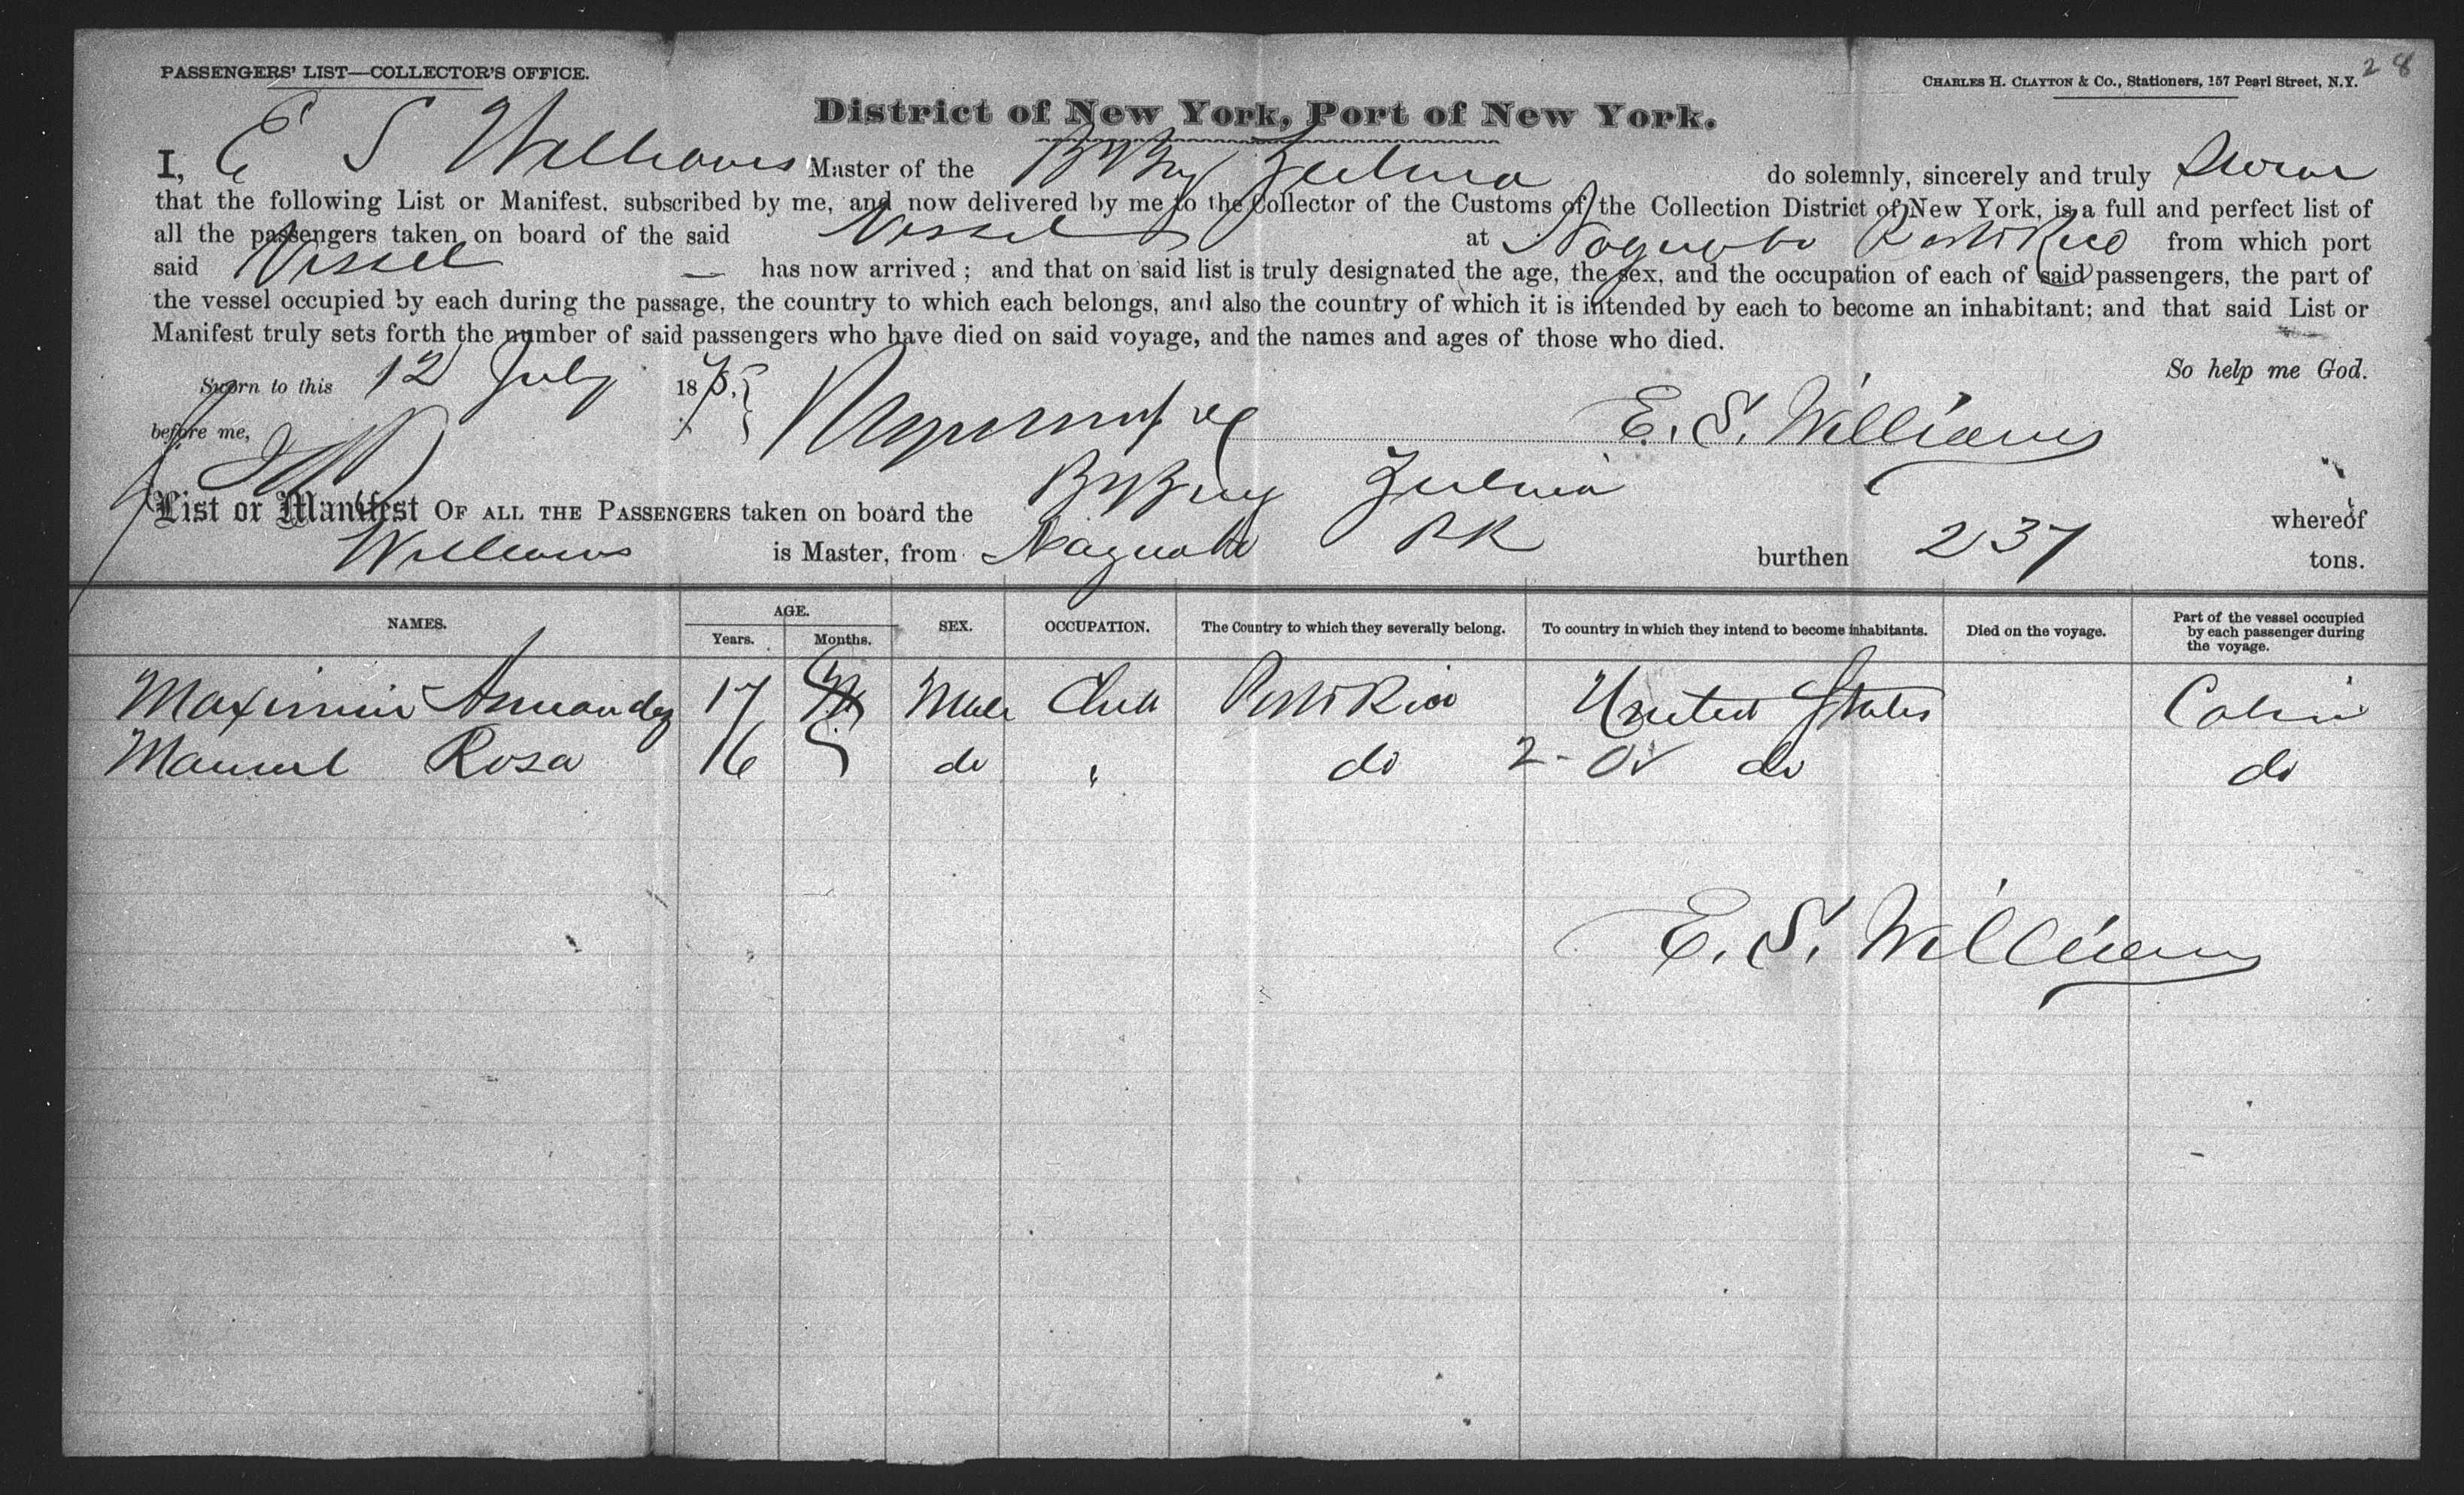 28
PASSENGERS' LIST—COLLECTOR'S OFFICE.
CHARLES H. CLAYTON & Co., Stationers, 157 Pearl Street, N.Y.
District of New York, Port of New York.
I, E S Williams Master of the Zulma do solemnly, sincerely and truly Swear
that the following List or Manifest, subscribed by me, and now delivered by me to the Collector of the Customs of the Collection District of New York, is a full and perfect list of
all the passengers taken on board of the said Vessel at Naguabo Porto Rico from which port
said Vessel — has now arrived; and that on said list is truly designated the age, the sex, and the occupation of each of said passengers, the part of
the vessel occupied by each during the passage, the country to which each belongs, and also the country of which it is intended by each to become an inhabitant; and that said List or
Manifest truly sets forth the number of said passengers who have died on said voyage, and the names and ages of those who died.
So help me God.
Sworn to this 12 July 1875.
before me, E. S. Williams
List or Manifest OF ALL THE PASSENGERS taken on board the Zulma whereof
Williams is Master, from Naguabo PR burthen 237 tons.
NAMES. AGE. Years. Months. SEX. OCCUPATION. The Country to which they severally belong. To country in which they intend to become inhabitants. Died on the voyage. Part of the vessel occupied by each passenger during the voyage.
17 Male Porto Rico United States Cabin
Manuel Rosa 16 do " do 2- do do
E. S. Williams